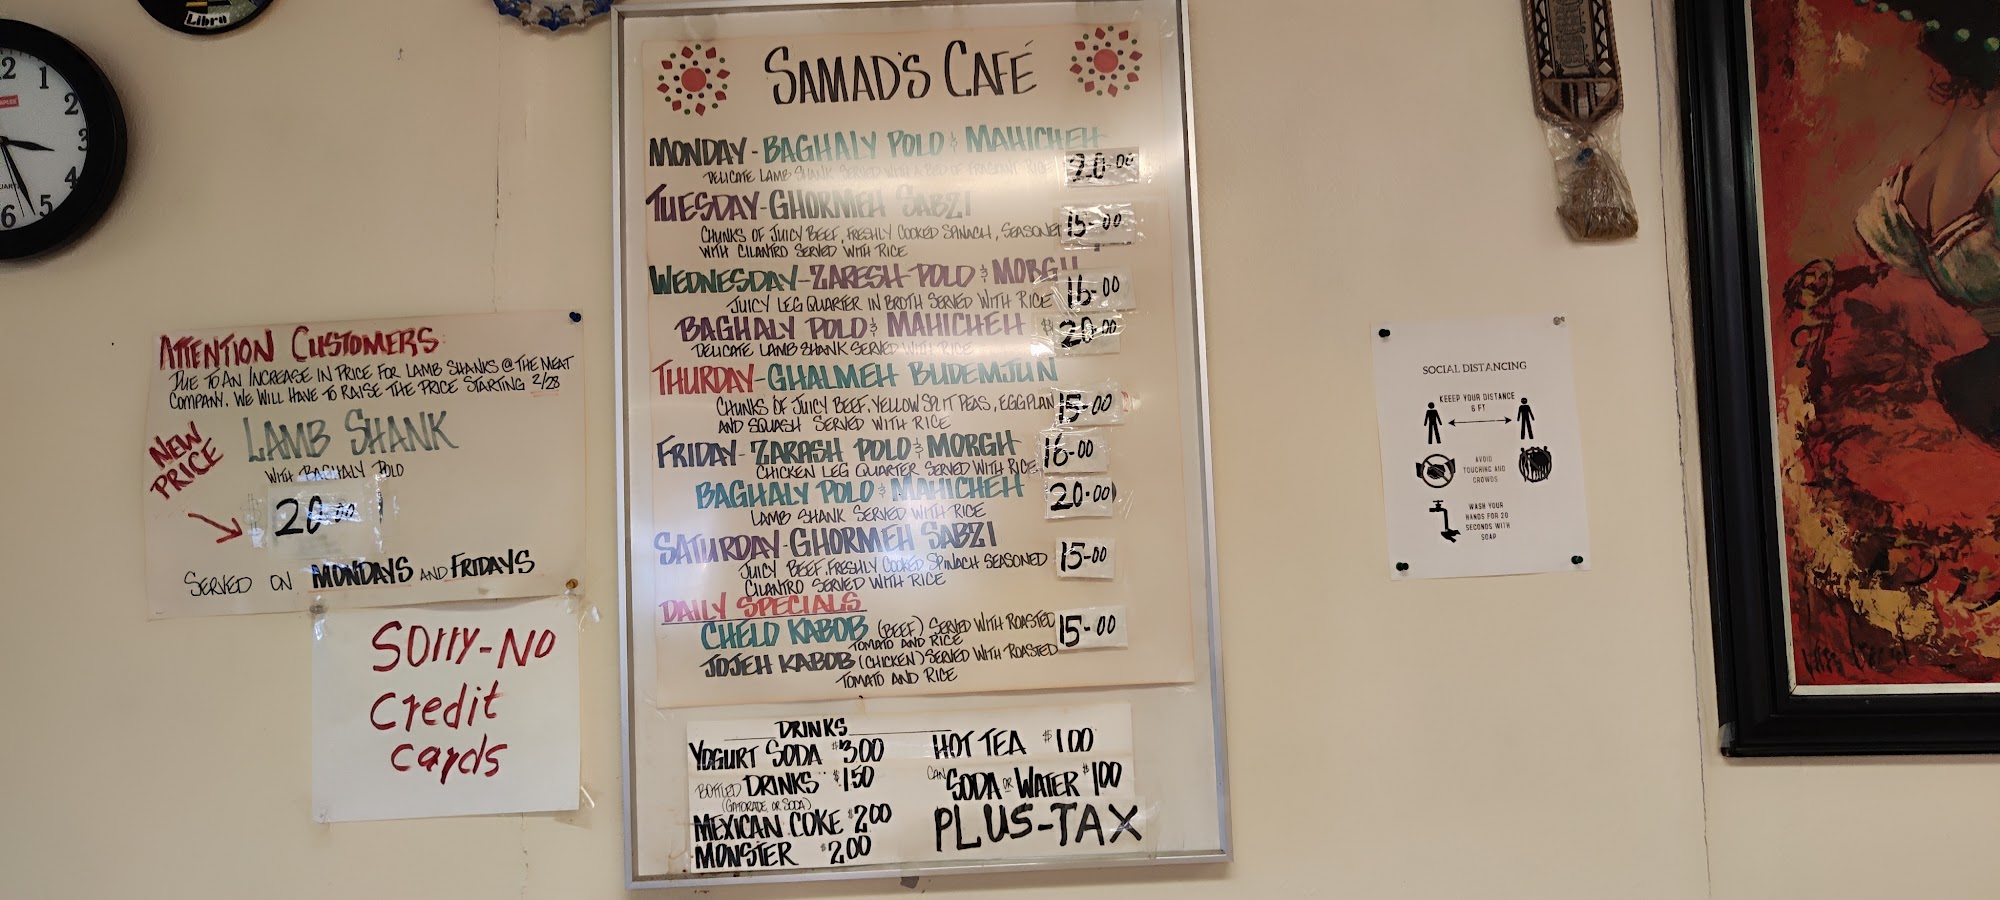 Libra
12
1
2
3
4
5
6
ATTENTION CUSTOMERS:
DUE TO AN INCREASE IN PRICE FOR LAMB SHANKS @ THE MEAT
COMPANY. WE WILL HAVE TO RAISE THE PRICE STARTING 2/28
NEW
PRICE
LAMB SHANK
WITH BAGHALY POLO
20.00
SERVED ON MONDAYS AND FRIDAYS
SOrry-NO
Credit
cards
SAMAD'S CAFÉ
MONDAY-BAGHALY POLO & MAHICHEH
DELICATE LAMB SHANK SERVED WITH A BED OF FRAGRANT RICE 20-00
TUESDAY-GHORMEH SABZI
CHUNKS OF JUICY BEEF, FRESHLY COOKED SPINACH, SEASONED 15-00
WITH CILANTRO SERVED WITH RICE
WEDNESDAY-ZARESH POLO & MORGH
JUICY LEG QUARTER IN BROTH SERVED WITH RICE 16-00
BAGHALY POLO & MAHICHEH $20-00
DELICATE LAMB SHANK SERVED WITH RICE
THURDAY-GHALMEH BUDEMJUN
CHUNKS OF JUICY BEEF, YELLOW SPLIT PEAS, EGGPLAN 15-00
AND SQUASH SERVED WITH RICE
FRIDAY-ZARASH POLO & MORGH 16-00
CHICKEN LEG QUARTER SERVED WITH RICE
BAGHALY POLO & MAHICHEH 20-00
LAMB SHANK SERVED WITH RICE
SATURDAY-GHORMEH SABZI
JUICY BEEF, FRESHLY COOKED SPINACH SEASONED 15-00
CILANTRO SERVED WITH RICE
DAILY SPECIALS
CHELO KABOB (BEEF) SERVED WITH ROASTED 15-00
TOMATO AND RICE
JOJEH KABOB (CHICKEN) SERVED WITH ROASTED
TOMATO AND RICE
DRINKS
YOGURT SODA $3.00
BOTTLED DRINKS $1.50
(GATORADE OR SODA)
MEXICAN COKE $2.00
MONSTER $2.00
HOT TEA $1.00
CAN SODA OR WATER $1.00
PLUS-TAX
SOCIAL DISTANCING
KEEEP YOUR DISTANCE
6 FT
AVOID
TOUCHING AND
CROWDS
WASH YOUR
HANDS FOR 20
SECONDS WITH
SOAP